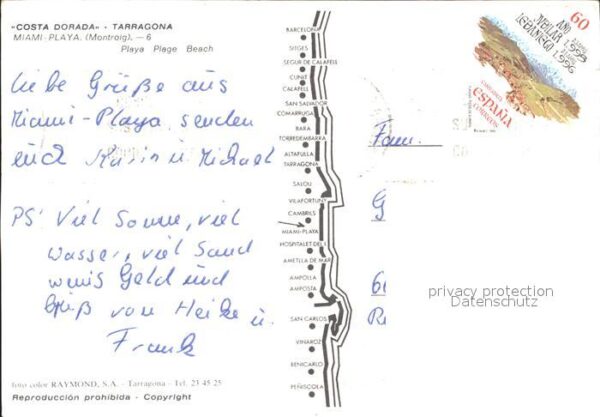 "COSTA DORADA" - TARRAGONA
MIAMI-PLAYA. (Montroig). — 6
Playa Plage Beach
liebe Grüße aus
Miami-Playa senden
euch Karin u. Michael
PS: Viel Sonne, viel
Wasser, viel Sand
wenig Geld und
Grüß von Heike u.
Frank
foto color RAYMOND, S.A. - Tarragona - Tel. 23 45 25
Reproducción prohibida - Copyright
BARCELONA
SITGES
SEGUR DE CALAFELL
CUNIT
CALAFELL
SAN SALVADOR
COMARRUGA
BARA
TORREDEMBARRA
ALTAFULLA
TARRAGONA
SALOU
VILAFORTUNY
CAMBRILS
MIAMI-PLAYA
HOSPITALET DEL I.
AMETLLA DE MAR
AMPOLLA
AMPOSTA
SAN CARLOS
VINAROZ
BENICARLO
PEÑISCOLA
60
AÑO
JUBILAR
LEBANIEGO
1995
1996
ESPAÑA
CORREOS
Fam.
G
6
R
privacy protection
Datenschutz